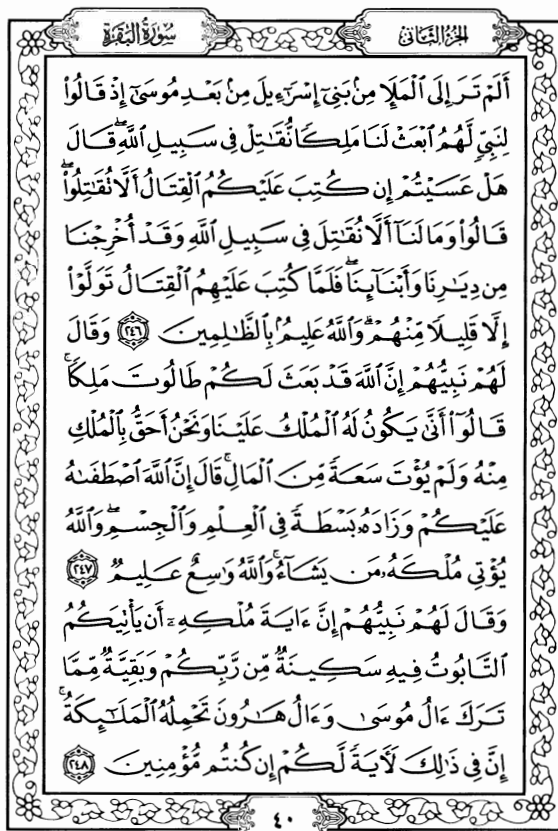 سُورَةُ البَقَرَةِ
الجُزْءُ الثَّانِي
أَلَمْ تَرَ إِلَى ٱلْمَلَإِ مِنۢ بَنِىٓ إِسْرَٰٓءِيلَ مِنۢ بَعْدِ مُوسَىٰٓ إِذْ قَالُوا۟
لِنَبِىٍّ لَّهُمُ ٱبْعَثْ لَنَا مَلِكًا نُّقَٰتِلْ فِى سَبِيلِ ٱللَّهِۖ قَالَ
هَلْ عَسَيْتُمْ إِن كُتِبَ عَلَيْكُمُ ٱلْقِتَالُ أَلَّا تُقَٰتِلُوا۟ۖ
قَالُوا۟ وَمَا لَنَآ أَلَّا نُقَٰتِلَ فِى سَبِيلِ ٱللَّهِ وَقَدْ أُخْرِجْنَا
مِن دِيَٰرِنَا وَأَبْنَآئِنَاۖ فَلَمَّا كُتِبَ عَلَيْهِمُ ٱلْقِتَالُ تَوَلَّوْا۟
إِلَّا قَلِيلًا مِّنْهُمْۗ وَٱللَّهُ عَلِيمٌۢ بِٱلظَّٰلِمِينَ ٢٤٦ وَقَالَ
لَهُمْ نَبِيُّهُمْ إِنَّ ٱللَّهَ قَدْ بَعَثَ لَكُمْ طَالُوتَ مَلِكًاۚ
قَالُوٓا۟ أَنَّىٰ يَكُونُ لَهُ ٱلْمُلْكُ عَلَيْنَا وَنَحْنُ أَحَقُّ بِٱلْمُلْكِ
مِنْهُ وَلَمْ يُؤْتَ سَعَةً مِّنَ ٱلْمَالِۚ قَالَ إِنَّ ٱللَّهَ ٱصْطَفَىٰهُ
عَلَيْكُمْ وَزَادَهُۥ بَسْطَةً فِى ٱلْعِلْمِ وَٱلْجِسْمِۖ وَٱللَّهُ
يُؤْتِى مُلْكَهُۥ مَن يَشَآءُۚ وَٱللَّهُ وَٰسِعٌ عَلِيمٌ ٢٤٧
وَقَالَ لَهُمْ نَبِيُّهُمْ إِنَّ ءَايَةَ مُلْكِهِۦٓ أَن يَأْتِيَكُمُ
ٱلتَّابُوتُ فِيهِ سَكِينَةٌ مِّن رَّبِّكُمْ وَبَقِيَّةٌ مِّمَّا
تَرَكَ ءَالُ مُوسَىٰ وَءَالُ هَٰرُونَ تَحْمِلُهُ ٱلْمَلَٰٓئِكَةُۚ
إِنَّ فِى ذَٰلِكَ لَءَايَةً لَّكُمْ إِن كُنتُم مُّؤْمِنِينَ ٢٤٨
٤٠